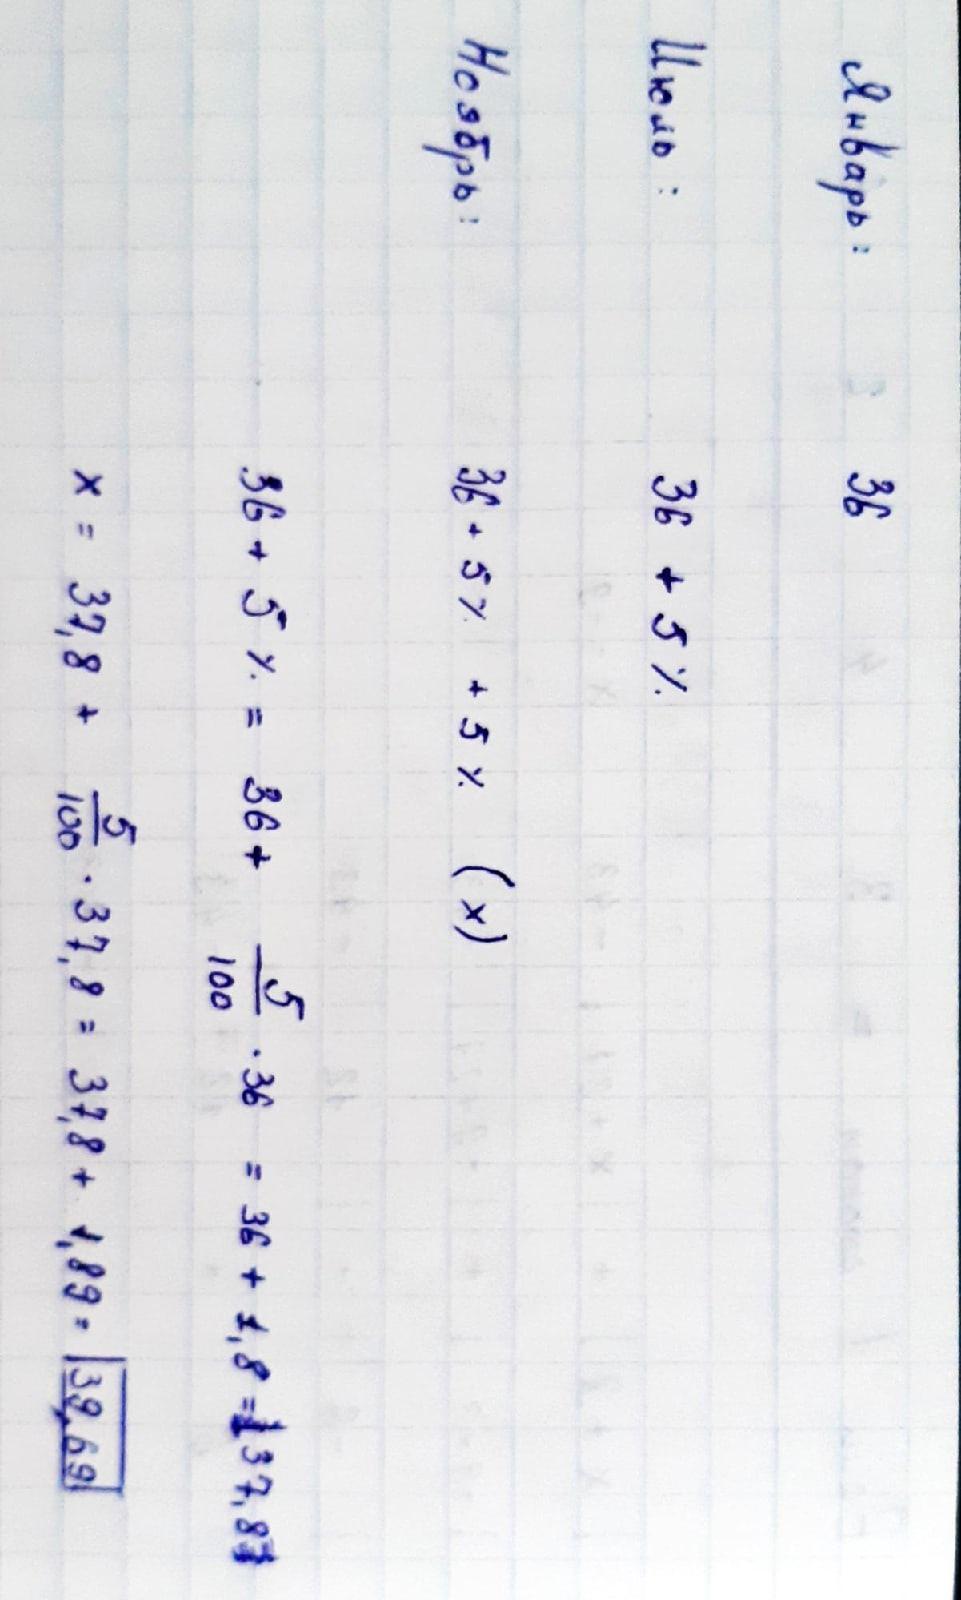 Январь: 36
Июль: 36 + 5%
Ноябрь: 36 + 5% + 5% (x)
36 + 5% = 36 + 5/100 · 36 = 36 + 1,8 = 37,8
x = 37,8 + 5/100 · 37,8 = 37,8 + 1,89 = 39,69